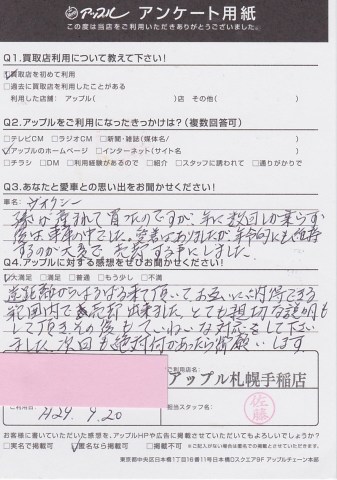 アップル アンケート用紙
この度は当店をご利用いただきありがとうございました。
Q1.買取店利用について教えて下さい!
☑買取店を初めて利用
□過去に買取店を利用したことがある
利用した店舗: アップル( )店 その他( )
Q2.アップルをご利用になったきっかけは?(複数回答可)
□テレビCM □ラジオCM □新聞・雑誌(媒体名/ )
☑アップルのホームページ □インターネット(サイト名 )
□チラシ □DM □利用経験があるので □紹介 □スタッフに誘われて □通りがかりで
Q3.あなたと愛車との思い出をお聞かせください!
車名:
孫が産まれて買ったのですが、年に数回しか乗らず
後は車庫の中でした。愛着はありましたが、年令的にも維持
するのが大変で、売却する事にしました。
Q4.アップルに対する感想をぜひお聞かせください!
☑大満足 □満足 □普通 □もう少し □不満
遠距離からはるばる来て頂いて、お互いに納得できる
範囲内で売却出来ました。とても親切な説明も
して頂きその後もていねいな対応をして下さい
ました。次回も絶対何かあったらお願いします。
アップル札幌手稲店
ご利用日
H29. 9. 20
担当スタッフ名:
佐藤
お客様に書いていただいた感想を、アップルHPや広告に掲載させていただいてもよろしいでしょうか?
□実名で掲載可 ☑匿名なら掲載可 □掲載不可
東京都中央区日本橋1丁目16番11号日本橋DスクエアBF アップルチェーン本部